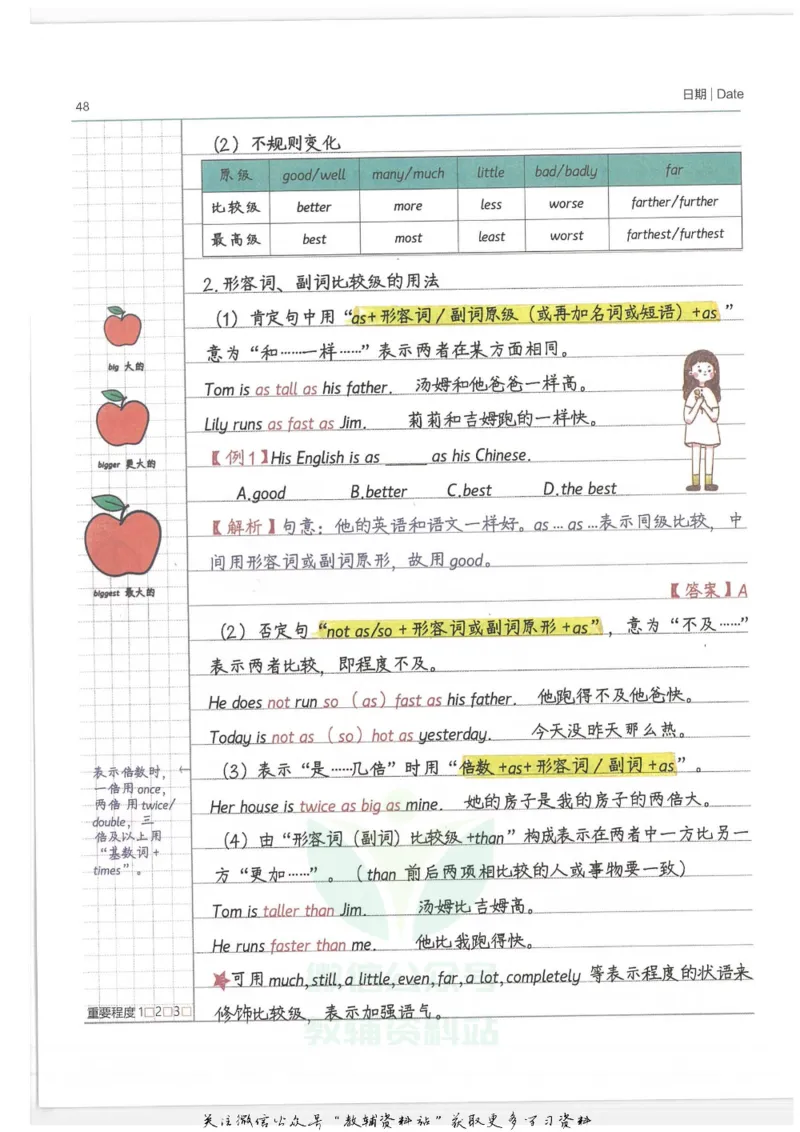 48
日期 | Date
(2) 不规则变化
原级 good/well many/much little bad/badly far
比较级 better more less worse farther/further
最高级 best most least worst farthest/furthest
2.形容词、副词比较级的用法
(1) 肯定句中用“as+形容词/副词原级（或再加名词或短语）+as ”
意为“和……一样……”表示两者在某方面相同。
Tom is as tall as his father. 汤姆和他爸爸一样高。
Lily runs as fast as Jim. 莉莉和吉姆跑的一样快。
【例1】His English is as _____ as his Chinese.
A.good B.better C.best D.the best
【解析】句意：他的英语和语文一样好。as … as …表示同级比较，中
间用形容词或副词原形，故用good。
【答案】A
(2) 否定句“not as/so +形容词或副词原形+as”，意为“不及……”
表示两者比较，即程度不及。
He does not run so （as）fast as his father. 他跑得不及他爸快。
Today is not as （so）hot as yesterday. 今天没昨天那么热。
(3) 表示“是……几倍”时用“倍数+as+形容词/副词+as”。
Her house is twice as big as mine. 她的房子是我的房子的两倍大。
(4) 由“形容词（副词）比较级+than”构成表示在两者中一方比另一
方“更加……”。（than 前后两项相比较的人或事物要一致）
Tom is taller than Jim. 汤姆比吉姆高。
He runs faster than me. 他比我跑得快。
★可用much,still,a little,even,far,a lot,completely 等表示程度的状语来
修饰比较级，表示加强语气。
big 大的
bigger 更大的
biggest 最大的
表示倍数时，←
一倍用once，
两倍 用twice/
double，三
倍及以上用
“基数词+
times”。
重要程度 1□2□3□
微信公众号
教辅资料站
关注微信公众号“教辅资料站”获取更多学习资料